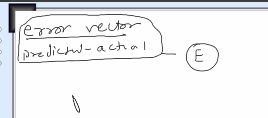 error vector
predicted-actual
E